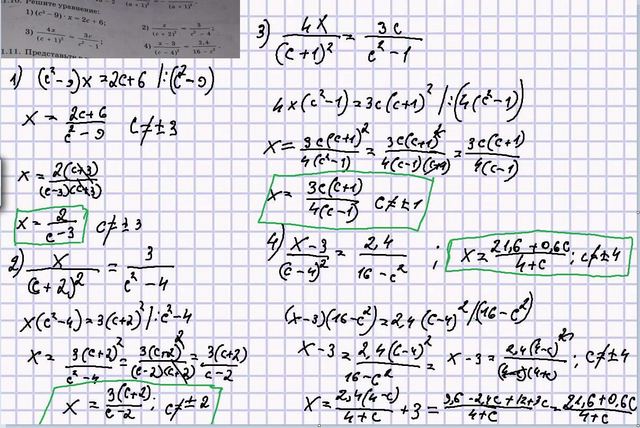 1.10. Решите уравнение:
1) (c² − 9) · x = 2c + 6;
2) x/(c+2)² = 3/(c²−4);
3) 4x/(c+1)² = 3c/(c²−1);
4) (x−3)/(c−4)² = 2,4/(16−c²).
1.11. Представьте
1) (c²−9)x = 2c+6 |:(c²−9)
x = (2c+6)/(c²−9) c≠±3
x = 2(c+3)/((c−3)(c+3))
x = 2/(c−3) c≠±3
2) x/(c+2)² = 3/(c²−4)
x(c²−4) = 3(c+2)² |:c²−4
x = 3(c+2)²/(c²−4) = 3(c+2)²/((c−2)(c+2)) = 3(c+2)/(c−2)
x = 3(c+2)/(c−2); c≠±2
3) 4x/(c+1)² = 3c/(c²−1)
4x(c²−1) = 3c(c+1)² |:(4(c²−1)
x = 3c(c+1)²/(4(c²−1)) = 3c(c+1)²/(4(c−1)(c+1)) = 3c(c+1)/(4(c−1)
x = 3c(c+1)/(4(c−1) c≠±1
4) (x−3)/(c−4)² = 2,4/(16−c²) ; x = (21,6+0,6c)/(4+c); c≠±4
(x−3)(16−c²) = 2,4(c−4)² /(16−c²)
x−3 = 2,4(c−4)²/(16−c²) = x−3 = 2,4(4−c)²/((4−c)(4+c)); c≠±4
x = 2,4(4−c)/(4+c) + 3 = (9,6−2,4c+12+3c)/(4+c) = (21,6+0,6c)/(4+c)